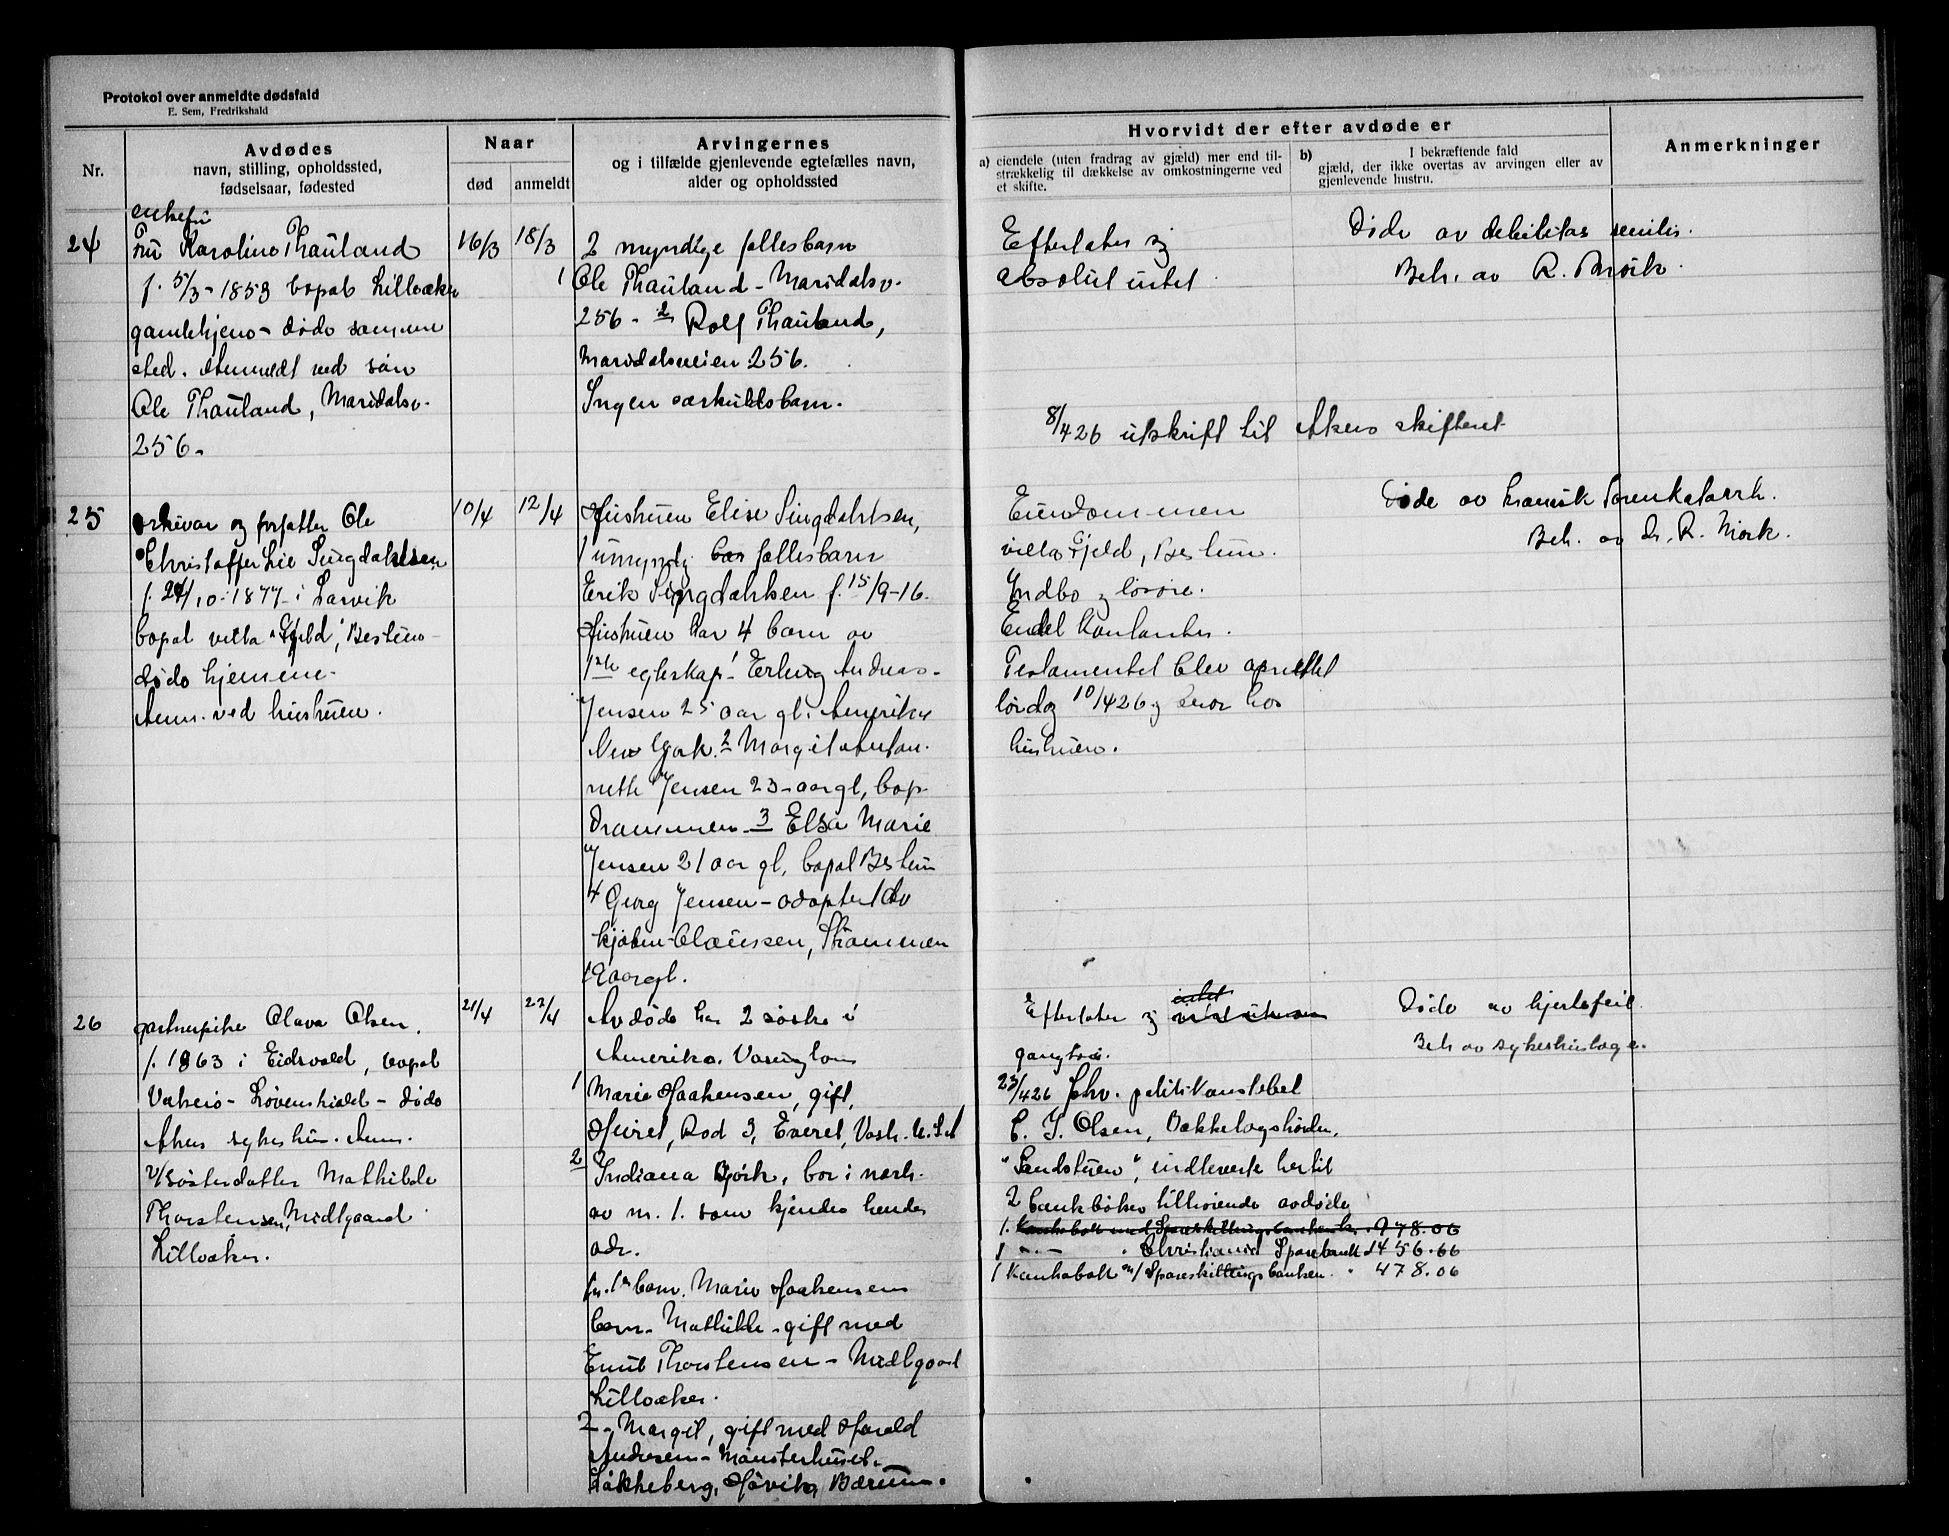 Protokol over anmeldte dødsfald
E. Sem, Fredrikshald
Nr.
Avdødes
navn, stilling, opholdssted,
fødselsaar, fødested
Naar
død
anmeldt
Arvingernes
og i tilfælde gjenlevende egtefælles navn,
alder og opholdssted
Hvorvidt der efter avdøde er
a) eiendele (uten fradrag av gjæld) mer end til-
strækkelig til dækkelse av omkostningerne ved
et skifte.
b) I bekræftende fald
gjæld, der ikke overtas av arvingen eller av
gjenlevende hustru.
Anmerkninger
24
enkefru
Fru Karoline Thauland
f. 5/3-1853 bopal Lilleaker
gamlehjem - døde samme
sted. Anmeldt ved søn
Ole Thauland, Maridalsv.
256.
16/3
18/3
2 myndige fællesbarn
1 Ole Thauland - Maridalsv.
256 - 2 Rolf Thauland,
Maridalsveien 256.
Ingen særkuldsbarn.
Efterlater sig
absolut intet
Døde av debilitas senilis.
Beh. av R. Mørk.
8/4 26 utskrift til Akers skifteret
25
Arkivar og forfatter Ole
Christoffer Lie Singdahlsen
f. 24/10-1877 i Larvik
bopal villa "Fjeld", Bestum -
døde hjemme -
Anm. ved hustruen.
10/4
12/4
Hustruen Elise Singdahlsen,
1 umyndig fællesbarn
Erik Singdahlsen f. 15/9-16.
Hustruen har 4 barn av
1ste egteskap: Erling Andreas
Jensen 25 aar gl. Amerika
New York. 2 Margit Antoi-
nette Jensen 23 aar gl, bop
Drammen - 3 Elsa Marie
Jensen 21 aar gl, bopal Bestum
4 Georg Jensen - adoptert av
kjøbm. Claussen, Drammen
aar gl.
Eiendommen
villa Fjeld, Bestum.
Indbo og løsøre.
Endel kontanter.
Testamentet blev oprettet
lørdag 10/4 26 og beror hos
hustruen.
Døde av kronisk
Beh. av dr. R. Mørk.
26
gartnerpike Olava Olsen,
f. 1863 i Eidsvold, bopal
Vækerø - Løvenskiold - døde
Akers sykehus. Anm.
v/ søsterdatter Mathilde
Thorstensen, Midtgaard
Lilleaker.
21/4
22/4
Avdøde har 2 søstre i
Amerika. Vasington
1 Marie Haakensen, gift,
Rod 3, Everet, Vash. U.S.A
2 Indiana Bjørk, bor i nærh.
av nr. 1. som kjender hendes
adr.
barn. Marie Haakensens
barn - Mathilde - gift med
Emil Thorstensen - Midtgaard
Lilleaker.
2 - Margit, gift med Harald
Andersen - Mønsterhuset.
Løkkeberg, Høvik, Bærum.
Efterlater sig intet
gangtøi.
23/4 26 politikonstabel
C. J. Olsen, Bækkelagshøiden,
"Sandstuen", indleverte hertil
2 bankbøker tilhørende avdøde
1. Kontrabok med Spareskillingsbanken . 478.06
1 -"- Christiania Sparebank 1456.66
1 Kontrabok m/ Spareskillingsbanken . " 478.06
Døde av hjertefeil.
Beh. av sykehuslæge.